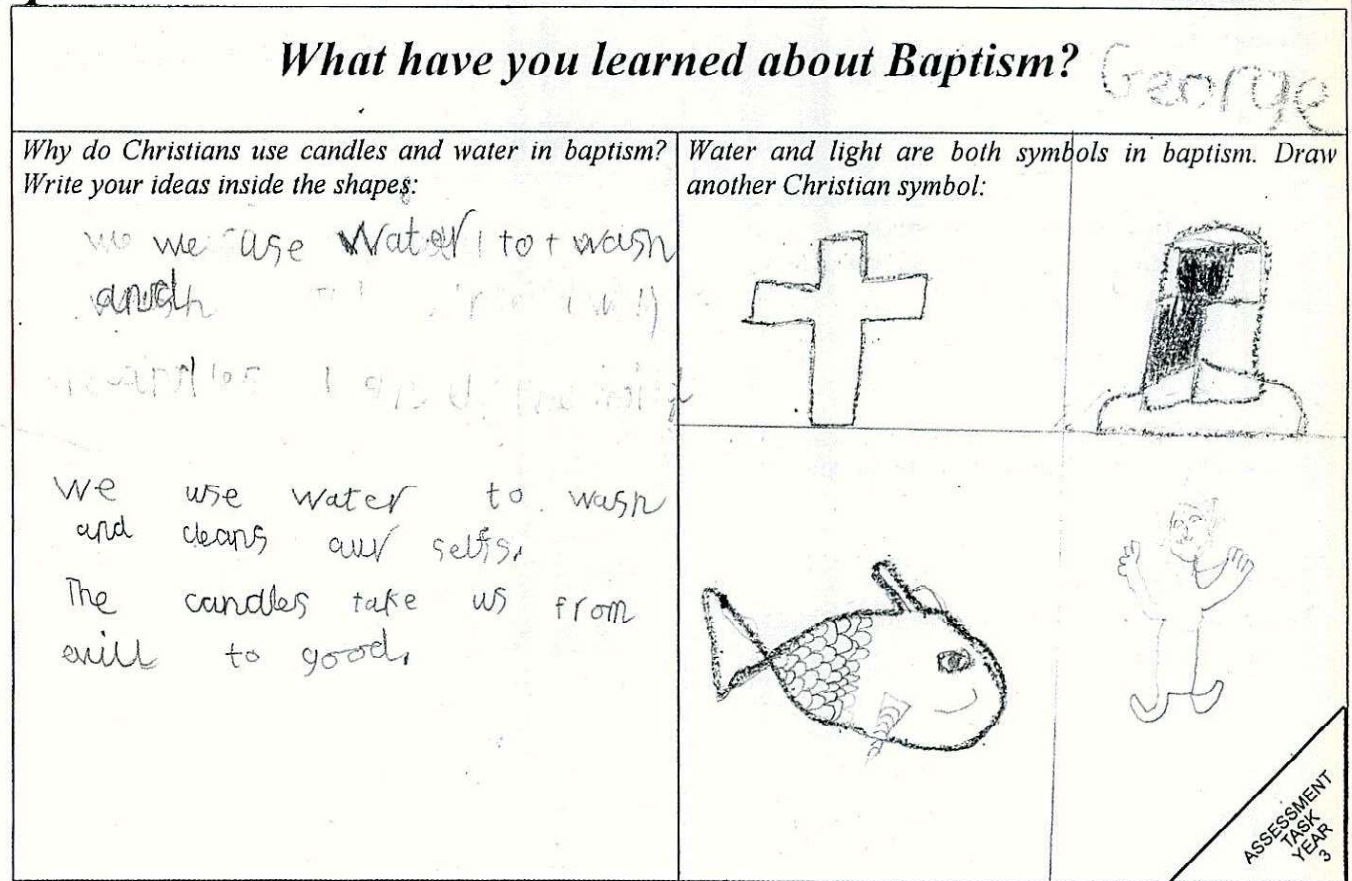 What have you learned about Baptism?
George
Why do Christians use candles and water in baptism?
Write your ideas inside the shapes:
we we use Water to t wash
and
We use water to wash
and cleans aur selfs.
The candles take us from
evill to good.
Water and light are both symbols in baptism. Draw
another Christian symbol:
ASSESSMENT
TASK
YEAR
3